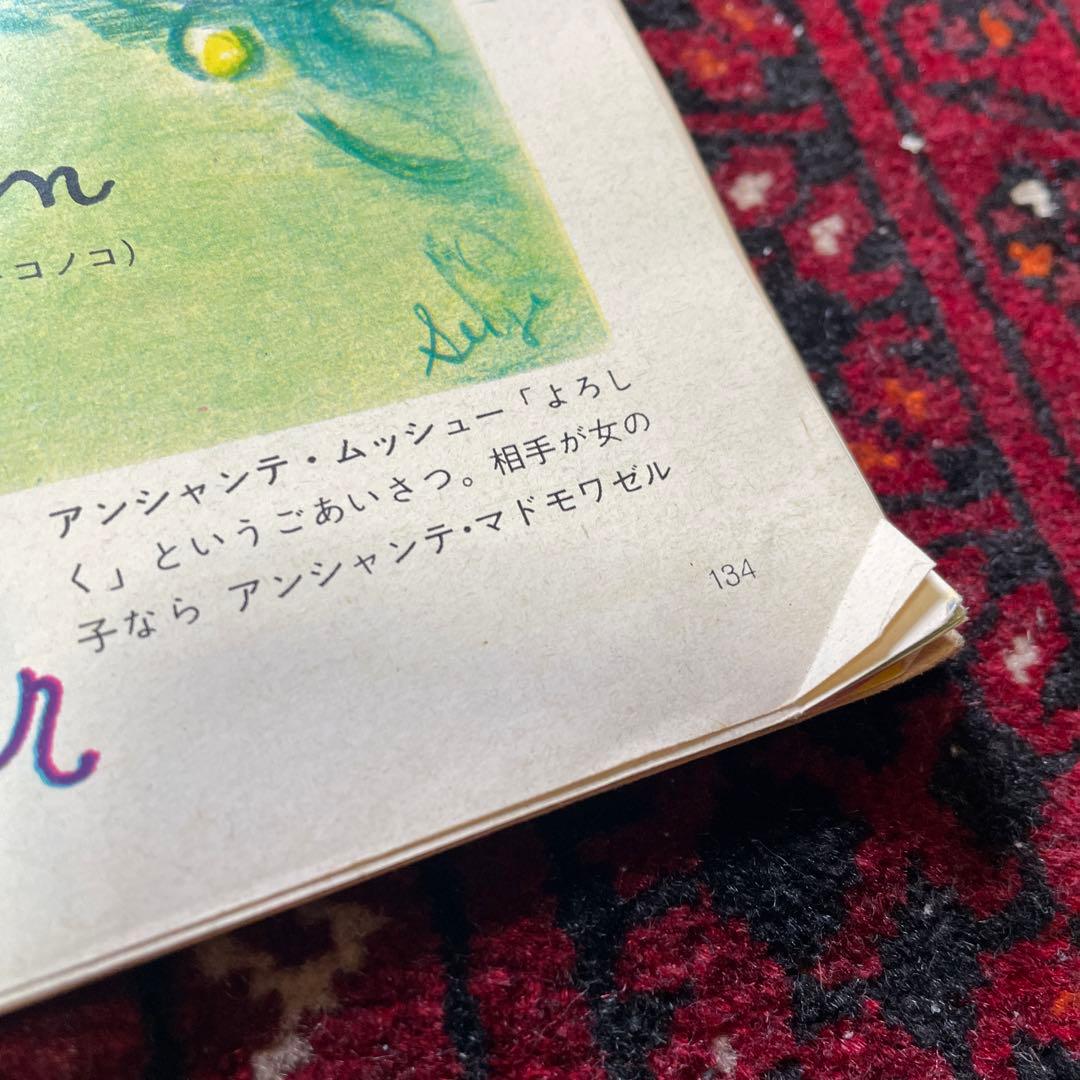 n
コノコ）
Seiji
アンシャンテ・ムッシュー「よろし
く」というごあいさつ。相手が女の
子なら アンシャンテ・マドモワゼル
134
r